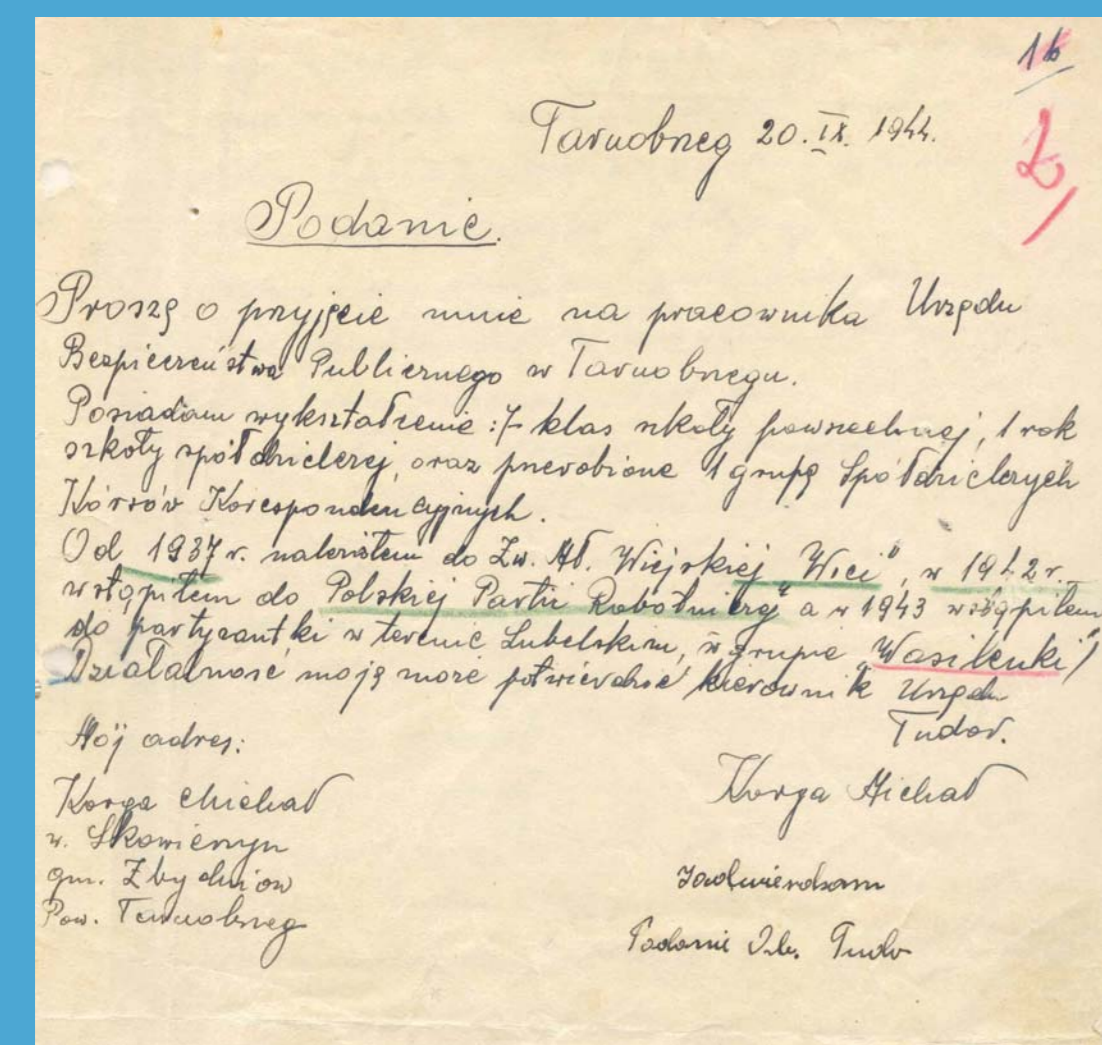 1b
2,
Tarnobrzeg 20.IX. 1944.
Podanie.
Proszę o przyjęcie mnie na pracownika Urzędu
Bezpieczeństwa Publicznego w Tarnobrzegu.
Posiadam wykształcenie: 7 klas szkoły powszechnej, 1 rok
szkoły spółdzielczej, oraz przerobione 1 grupę Spółdzielczych
Kórsów Korespondencyjnych.
Od 1937 r. należałem do Zw. Mł. Wiejskiej "Wici", w 1942 r.
wstąpiłem do Polskiej Partii Robotniczej" a w 1943 wstąpiłem
do partyzantki w terenie Lubelskim, w grupie "Wasilenki"
Działalność moją może potwierdzić kierownik Urzędu
Tudor.
Mój adres:
Korga Michał
Korga Michał
w. Skowierzyn
gm. Zbydniów
Pow. Tarnobrzeg
Podanie Ob.